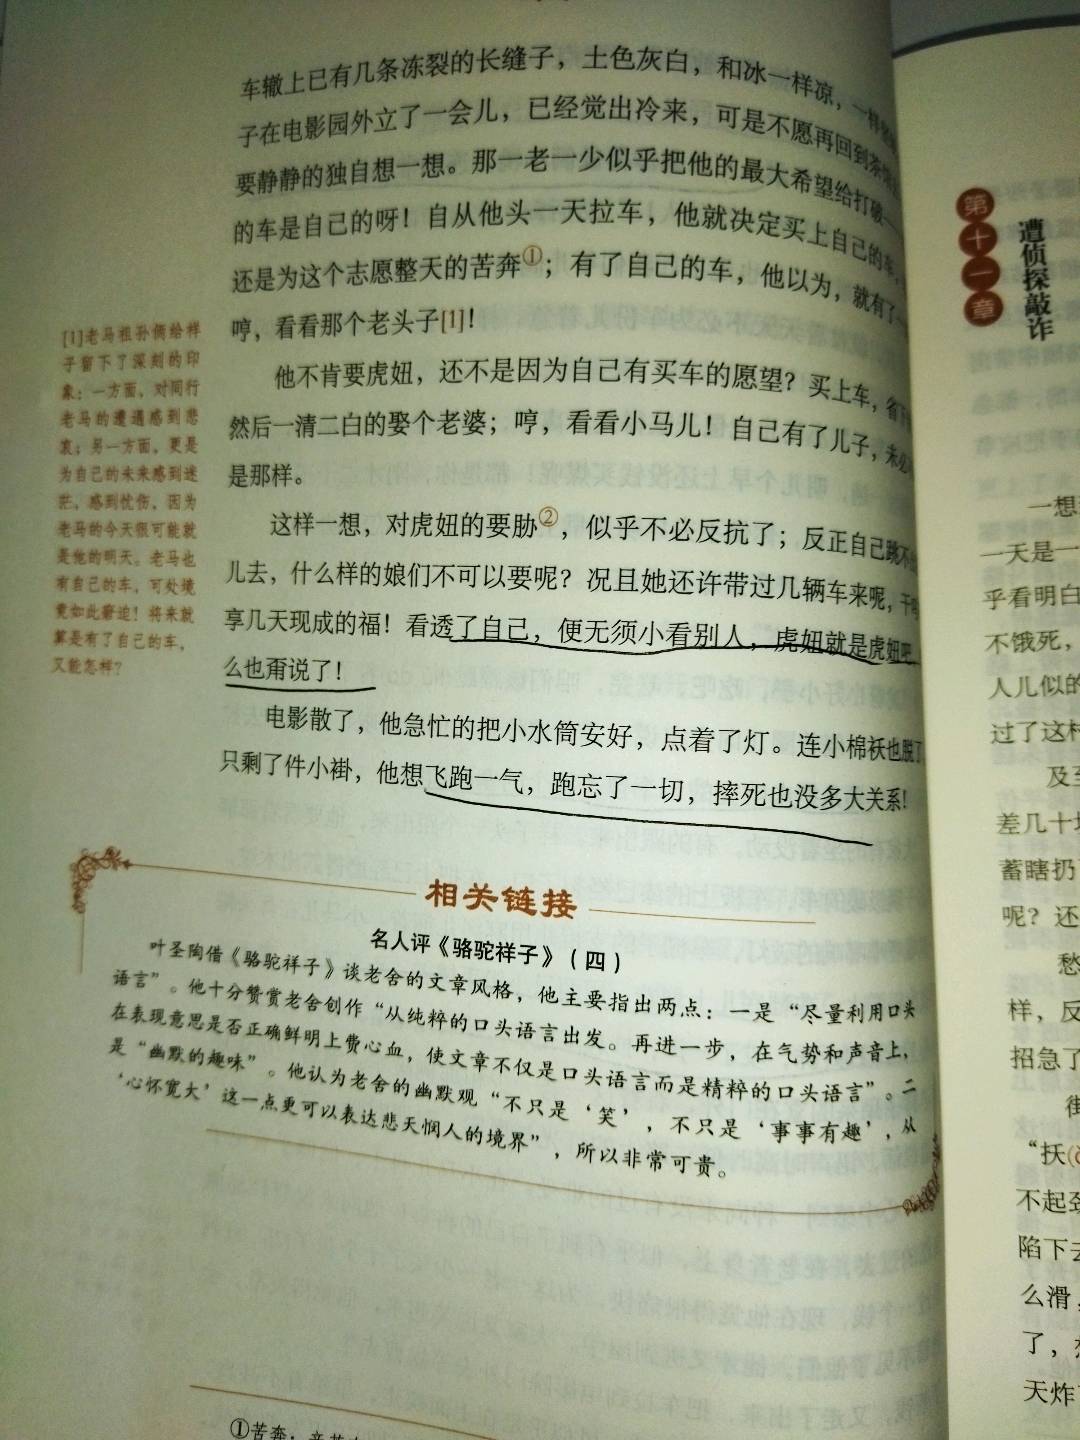 车辙上已有几条冻裂的长缝子，土色灰白，和冰一样凉，一样
子在电影园外立了一会儿，已经觉出冷来，可是不愿再回到茶
要静静的独自想一想。那一老一少似乎把他的最大希望给打破一
的车是自己的呀！自从他头一天拉车，他就决定买上自己的车，
还是为这个志愿整天的苦奔①；有了自己的车，他以为，就有了一
哼，看看那个老头子[1]！
他不肯要虎妞，还不是因为自己有买车的愿望？买上车，省下
然后一清二白的娶个老婆；哼，看看小马儿！自己有了儿子，未必
是那样。
这样一想，对虎妞的要胁②，似乎不必反抗了；反正自己跳不
儿去，什么样的娘们不可以要呢？况且她还许带过几辆车来呢，干
享几天现成的福！看透了自己，便无须小看别人，虎妞就是虎妞吧
么也甭说了！
电影散了，他急忙的把小水筒安好，点着了灯。连小棉袄也脱了
只剩了件小褂，他想飞跑一气，跑忘了一切，摔死也没多大关系！
[1]老马祖孙俩给祥
子留下了深刻的印
象：一方面，对同行
老马的遭遇感到悲
哀；另一方面，更是
为自己的未来感到迷
茫，感到忧伤，因为
老马的今天很可能就
是他的明天。老马也
有自己的车，可处境
竟如此窘迫！将来就
算是有了自己的车，
又能怎样？
相关链接
名人评《骆驼祥子》（四）
叶圣陶借《骆驼祥子》谈老舍的文章风格，他主要指出两点：一是“尽量利用口头
语言”。他十分赞赏老舍创作“从纯粹的口头语言出发。再进一步，在气势和声音上，
在表现意思是否正确鲜明上费心血，使文章不仅是口头语言而是精粹的口头语言”。二
是“幽默的趣味”。他认为老舍的幽默观“不只是‘笑’，不只是‘事事有趣’，从
‘心怀宽大’这一点更可以表达悲天悯人的境界”，所以非常可贵。
①苦奔：
第十一章
遭侦探敲诈
一想
一天是一
乎看明白
不饿死，
人儿似的
过了这样
及至
差几十块
蓄瞎扔
呢？还
愁
样，反
招急了
街
“扶
不起
陷下去
么滑，
了，
天炸